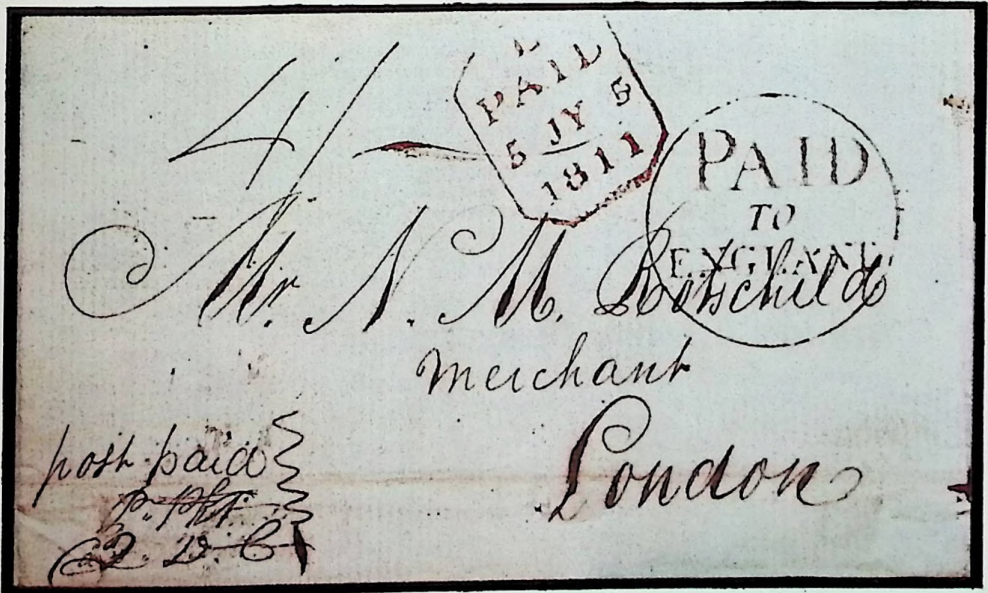 4/-
PAID
5 JY 5
1811
PAID
TO
ENGLAND
Mr. N. M. Rothschild
merchant
London
post paid
p. Pkt